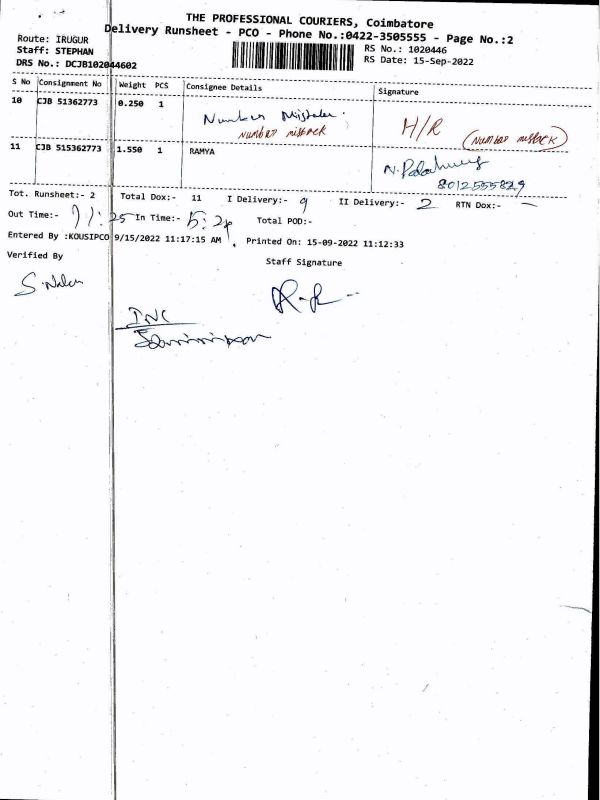 THE PROFESSIONAL COURIERS, Coimbatore
Delivery Runsheet - PCO - Phone No.:0422-3505555 - Page No.:2
Route: IRUGUR
RS No.: 1020446
Staff: STEPHAN
RS Date: 15-Sep-2022
DRS No.: DCJB102044602
S No Consignment No Weight PCS Consignee Details Signature
10 CJB 51362773 0.250 1 Number Mistake. H/R
NUMBER (NUMBER
11 CJB 515362773 1.550 1 RAMYA
8012555829
Tot. Runsheet:- 2 Total Dox:- 11 I Delivery:- 9 II Delivery:- 2 RTN Dox:- —
Out Time:- 11:25 In Time:- 5:24 Total POD:-
Entered By :KOUSIPCO 9/15/2022 11:17:15 AM , Printed On: 15-09-2022 11:12:33
Verified By
Staff Signature
INC